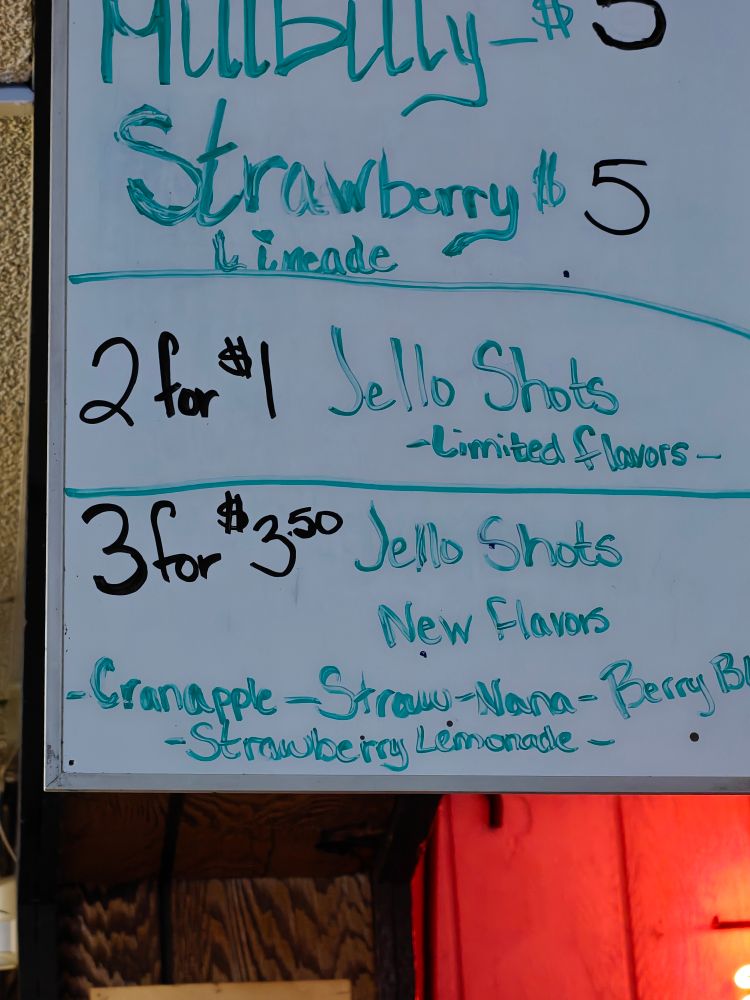 Millbilly - $5
Strawberry $5
Limeade
2 for $1 Jello Shots
- Limited flavors -
3 for $3.50 Jello Shots
New Flavors
- Cranapple - Straw-Nana - Berry
- Strawberry Lemonade -